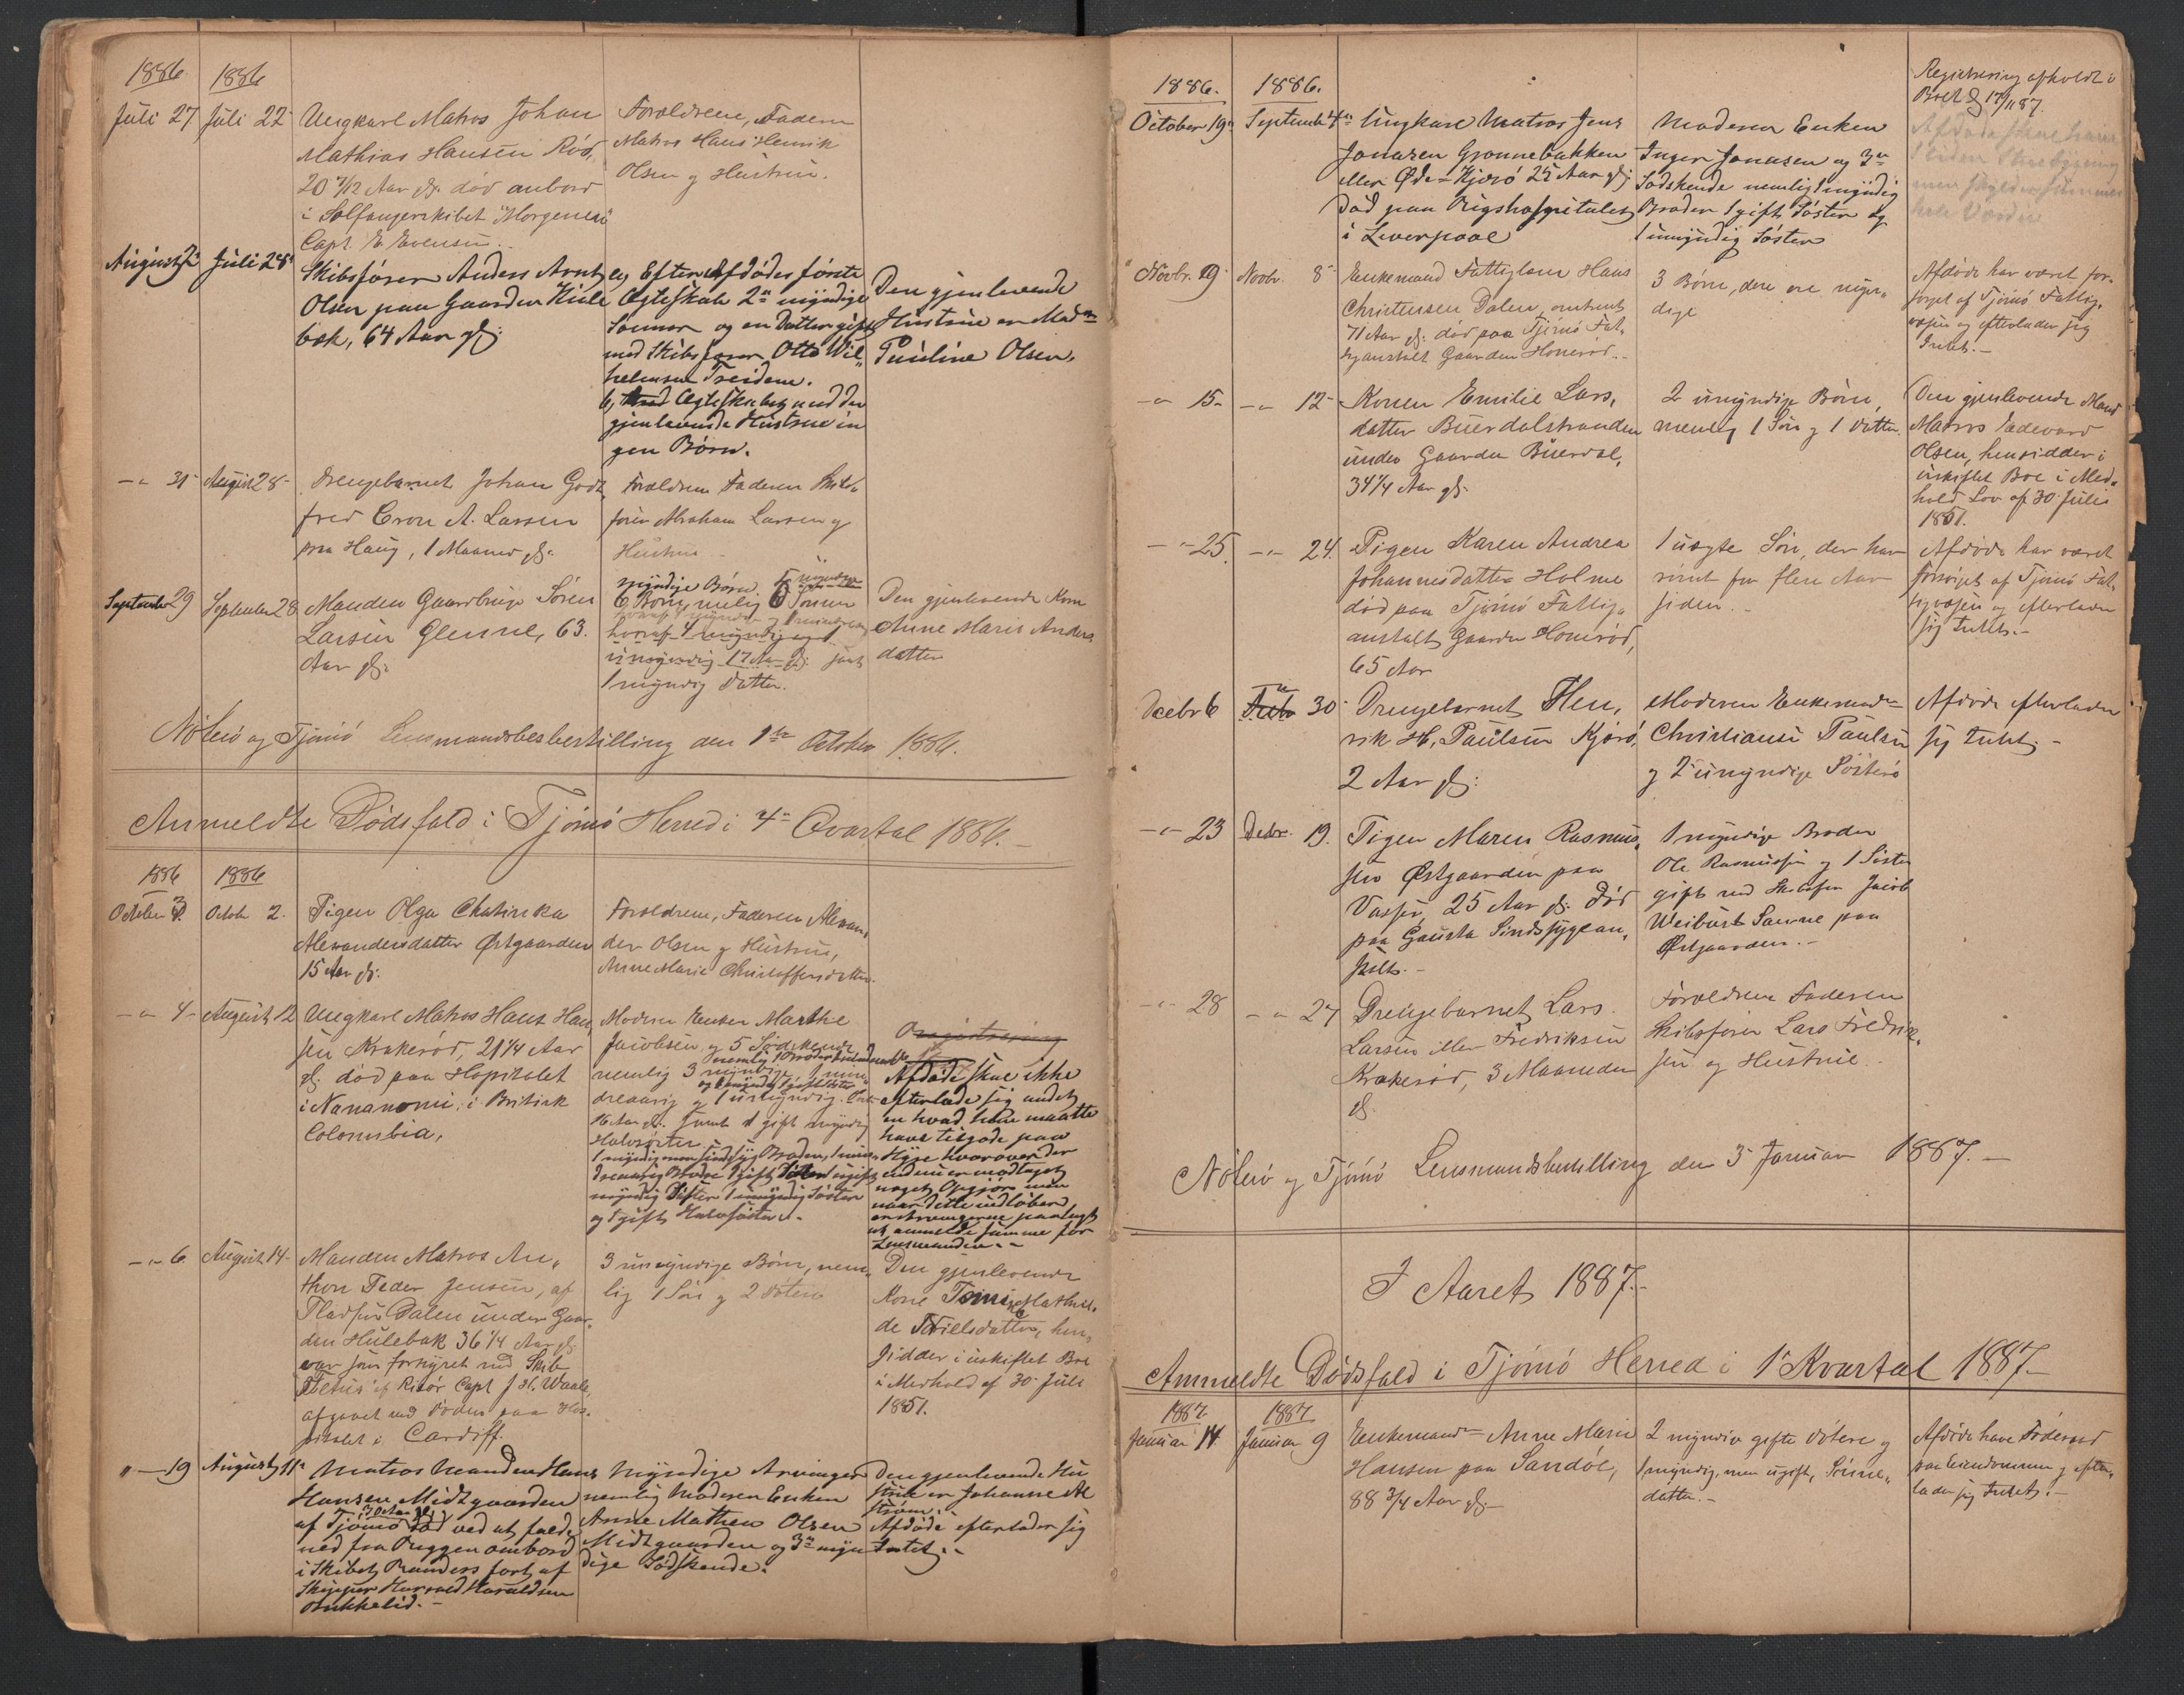 1886 1886
Juli 27 Juli 22 Ungkarl Matros Johan
Mathias Hansen Rød,
20 7/12 Aar gl. død ombord
i Sælfangerskibet "Morgenen"
Capt. E. Evensen.
Forældrene, Faderen
Matros Hans Henrik
Olsen og Hustru.
August 2 Juli 28 Skibsfører Anders Arnt
Olsen paa Gaarden Hule
bæk, 64 Aar gl.
a, Efter Afdødes første
Ægteskab 2 myndige
Sønner og en Datter gift
med Skibsfører Otto Wil
helmsen Treidene.
b, Ægteskabet med den
gjenlevende Hustrue in
gen Børn.
Den gjenlevende
Hustrue er Madm
Pauline Olsen.
-"- 31 August 28 Drengebarnet Johan Godt
fred Cron A. Larsen
paa Haug, 1 Maaned gl.
Forældrene Faderen Skibs
fører Abraham Larsen og
Hustru
September 29 September 28 Manden Gaardbruger Søren
Larsen Glenne, 63
Aar gl.
myndige Børn
6 Børn, nemlig 6 Sønner
hvoraf 4 myndige og 1
umyndig 17 Aar gl. samt
1 myndig Datter.
Den gjenlevende Kone
Anne Marie Anders
datter
Nøterø og Tjømø Lensmandsbesbestilling den 1ste October 1886.
Anmeldte Dødsfald i Tjømø Herred i 4de Qvartal 1886.
1886 1886
October 3 Octob 2. Pigen Olga Chatinka
Alexandersdatter Østgaarden
15 Aar gl.
Forældrene, Faderen Alexan
der Olsen og Hustru,
Anne Marie Christoffersdatter.
-"- 4 August 12 Ungkarl Matros Hans Han
sen Krakerød, 21 1/4 Aar
gl. død paa Hospitalet
i Nananomi i British
Colombia.
Moderen Enken Marthe
Jacobsen og 5 Sødskende
nemlig 3 myndige, 1 min
dreaarig og 1 umyndig
16 Aar gl. samt 1 gift myndig
Halvsøster
1 myndig men sindssyg Broder, 1 min
dreaarig Broder 1 gift Søster 1 ugift
myndig Søster 1 umyndig Søster
og 1 gift Halvsøster.
Oregistrering
Afdøde skal ikke
efterlade sig andet
en hvad han maatte
have tilgode paa
Hyre hvorover der
endnu er modtaget
noget Opgjør men
naar dette indløber
er Arvingerne paalagt
at anmelde samme for
Lensmanden.
-"- 6 August 14 Manden Matros An
thon Peder Jensen, af
Pladsen Dalen under Gaar
den Hulebak 36 1/4 Aar gl.
var som forhyret med Skib
"Fletus" af Risør Capt J. H. Waale,
afgaaet ved Døden paa Hos
pitalet i Cardiff.
3 umyndige Børn, nem
lig 1 Søn og 2 Døtre
Den gjenlevende
Kone Tomine Mathil
de Nielsdatter, hen
sidder i uskiftet Boe
i Medhold af 30 Juli
1851.
"-19 August 11 Matros Manden Hans
Hansen Midtgaarden
af Tjømø død ved at falde
ned fra Riggen ombord
i Skibet Randers fort af
Skipper Harald Haraldsen
Bukkelid.
Myndige Arvinger
nemlig Moderen Enken
Anne Mathea Olsen
Midtgaarden og 3 myn
dige Sødskende.
Den gjenlevende Hu
strue er Johanne Al
strøm.
Afdøde efterlader sig
Intet.
1886. 1886.
October 19 September 4 Ungkarl Matros Jens
Jonasen Grønnebakken
eller Øde-Kjærø 25 Aar gl.
død paa Rigshospitalet
i Liverpool
Moderen Enken
Inger Jonasen og 3
Sødskende nemlig 1 myndig
Broder 1 gift Søster og
1 umyndig Søster
Registrering afholdt i
Boet d 17/1 87.
Novbr. 19 Novbr 8 Enkemand Fattiglem Hans
Christensen Dalen omtrent
71 Aar gl. død paa Tjømø Fat
tiganstalt Gaarden Honerød.
3 Børn, der ere myn
dige
Afdøde har været for
sørget af Tjømø Fattig
væsen og efterlader sig
Intet.
-"- 15 -"- 12 Konen Emilie Lars
datter Buerdalstranden
under Gaarden Buerdal,
34 1/4 Aar gl.
2 umyndige Børn,
nemlig 1 Søn og 1 Datter.
Den gjenlevende Mand
Matros Edevard
Olsen, hensidder i
uskiftet Boe i Med
hold Lov af 30 Julis
1851.
-"- 25 -"- 24 Pigen Karen Andrea
Johannesdatter Holme
død paa Tjømø Fattig
anstalt Gaarden Honerød,
65 Aar
1 uægte Søn, der har
rømt for flere Aar
siden.
Afdøde har været
forsørget af Tjømø Fat
tigvæsen og efterlader
sig Intet.
Decbr 6 30 Drengebarnet Hen
rik H. Paulsen Kjærø,
2 Aar gl.
Moderen Enkemadm
Christiansi Paulsen
og 2 umyndige Søstre
Afdøde efterlader
sig Intet.
-"- 23 Decbr. 19. Pigen Maren Rasmus
sen Østgaarden paa
Vasser, 25 Aar gl. død
paa Gausta Sindssygean
stalt.
1 myndige Broder
Ole Rasmussen og 1 Søster
gift med Skibsfører Jacob
Weibust Sanne paa
Østgaarden.
-"- 28 -"- 27 Drengebarnet Lars
Larsen eller Fredriksen
Krakerød, 3 Maaneder
gl.
Forældrene Faderen
Skibsfører Lars Fredrik
sen og Hustrue.
Nøterø og Tjømø Lensmandsbestilling den 3 Januar 1887.
I Aaret 1887.
Anmeldte Dødsfald i Tjømø Herred i 1ste Kvartal 1887.
1887 1887
Januar 14 Januar 9 Enkemadm Anne Marie
Hansen paa Sandøe,
88 3/4 Aar gl.
2 myndie gifte Døtere og
1 myndig, men ugift, Sønne
datter.
Afdøde have Føderaad
paa Eiendommen og efter
lader sig Intet.